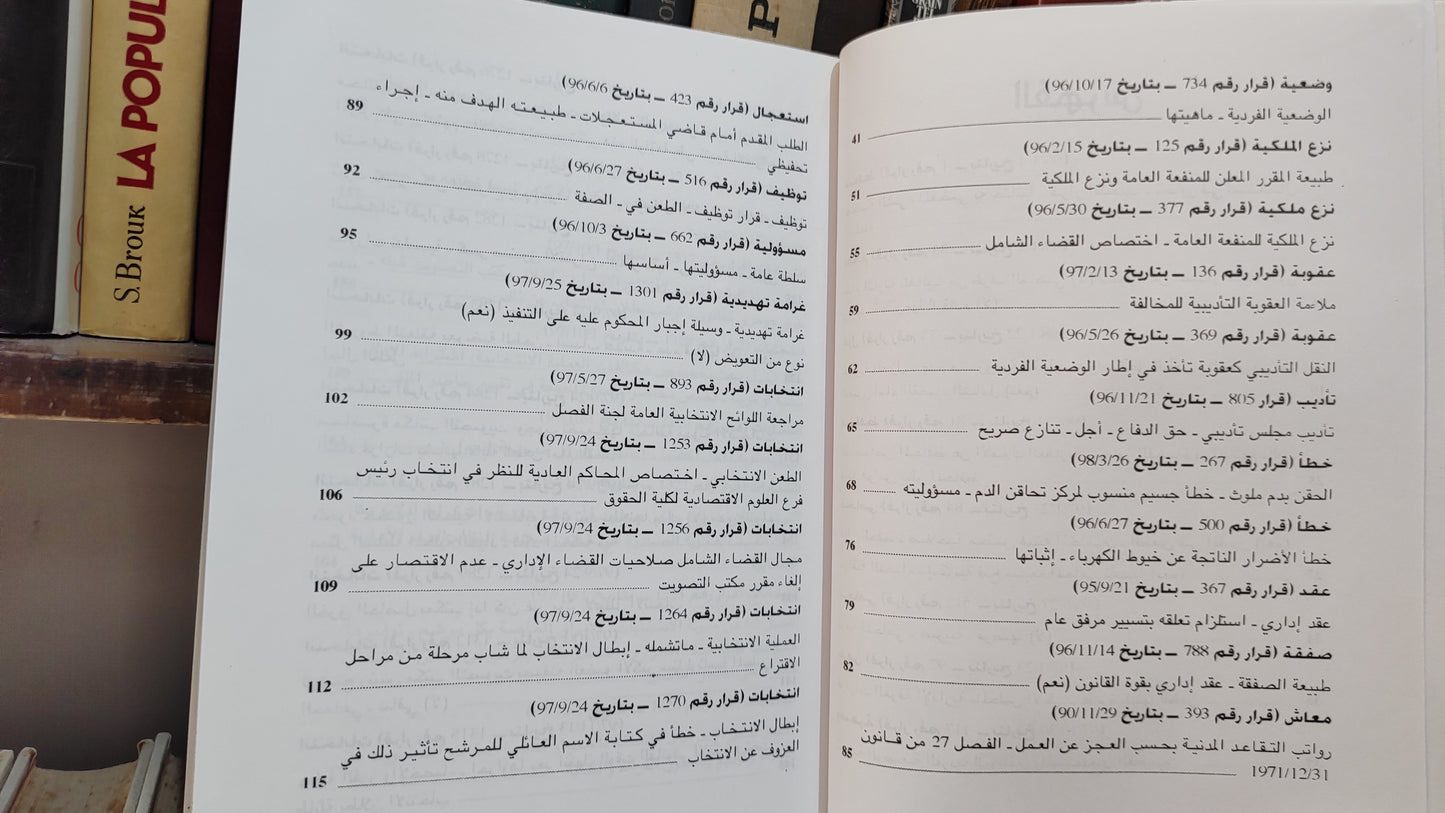 وضعية (قرار رقم 734 ـ بتاريخ 96/10/17)
الوضعية الفردية ـ ماهيتها ........ 41
نزع الملكية (قرار رقم 125 ـ بتاريخ 96/2/15)
طبيعة المقرر المعلن للمنفعة العامة ونزع الملكية ........ 51
نزع ملكية (قرار رقم 377 ـ بتاريخ 96/5/30)
نزع الملكية للمنفعة العامة ـ اختصاص القضاء الشامل ........ 55
عقوبة (قرار رقم 136 ـ بتاريخ 97/2/13)
ملاءمة العقوبة التأديبية للمخالفة ........ 59
عقوبة (قرار رقم 369 ـ بتاريخ 96/5/26)
النقل التأديبي كعقوبة تأخذ في إطار الوضعية الفردية ........ 62
تأديب (قرار 805 ـ بتاريخ 96/11/21)
تأديب مجلس تأديبي ـ حق الدفاع ـ أجل ـ تنازع صريح ........ 65
خطأ (قرار رقم 267 ـ بتاريخ 98/3/26)
الحقن بدم ملوث ـ خطأ جسيم منسوب لمركز تحاقن الدم ـ مسؤوليته ........ 68
خطأ (قرار رقم 500 ـ بتاريخ 96/6/27)
خطأ الأضرار الناتجة عن خيوط الكهرباء ـ إثباتها ........ 76
عقد (قرار رقم 367 ـ بتاريخ 95/9/21)
عقد إداري ـ استلزام تعلقه بتسيير مرفق عام ........ 79
صفقة (قرار رقم 788 ـ بتاريخ 96/11/14)
طبيعة الصفقة ـ عقد إداري بقوة القانون (نعم) ........ 82
معاش (قرار رقم 393 ـ بتاريخ 90/11/29)
رواتب التقاعد المدنية بحسب العجز عن العمل ـ الفصل 27 من قانون
1971/12/31 ........ 85
استعجال (قرار رقم 423 ـ بتاريخ 96/6/6)
الطلب المقدم أمام قاضي المستعجلات ـ طبيعته الهدف منه ـ إجراء
تحفيظي ........ 89
توظيف (قرار رقم 516 ـ بتاريخ 96/6/27)
توظيف ـ قرار توظيف ـ الطعن في ـ الصفة ........ 92
مسؤولية (قرار رقم 662 ـ بتاريخ 96/10/3)
سلطة عامة ـ مسؤوليتها ـ أساسها ........ 95
غرامة تهديدية (قرار رقم 1301 ـ بتاريخ 97/9/25)
غرامة تهديدية ـ وسيلة إجبار المحكوم عليه على التنفيذ (نعم)
نوع من التعويض (لا) ........ 99
انتخابات (قرار رقم 893 ـ بتاريخ 97/5/27)
مراجعة اللوائح الانتخابية العامة لجنة الفصل ........ 102
انتخابات (قرار رقم 1253 ـ بتاريخ 97/9/24)
الطعن الانتخابي ـ اختصاص المحاكم العادية للنظر في انتخاب رئيس
فرع العلوم الاقتصادية لكلية الحقوق ........ 106
انتخابات (قرار رقم 1256 ـ بتاريخ 97/9/24)
مجال القضاء الشامل صلاحيات القضاء الإداري ـ عدم الاقتصار على
إلغاء مقرر مكتب التصويت ........ 109
انتخابات (قرار رقم 1264 ـ بتاريخ 97/9/24)
العملية الانتخابية ـ ماتشمله ـ إبطال الانتخاب لما شاب مرحلة من مراحل
الاقتراع ........ 112
انتخابات (قرار رقم 1270 ـ بتاريخ 97/9/24)
إبطال الانتخاب ـ خطأ في كتابة الاسم العائلي للمرشح تأثير ذلك في
العزوف عن الانتخاب ........ 115
S. Brouk LA POPUL